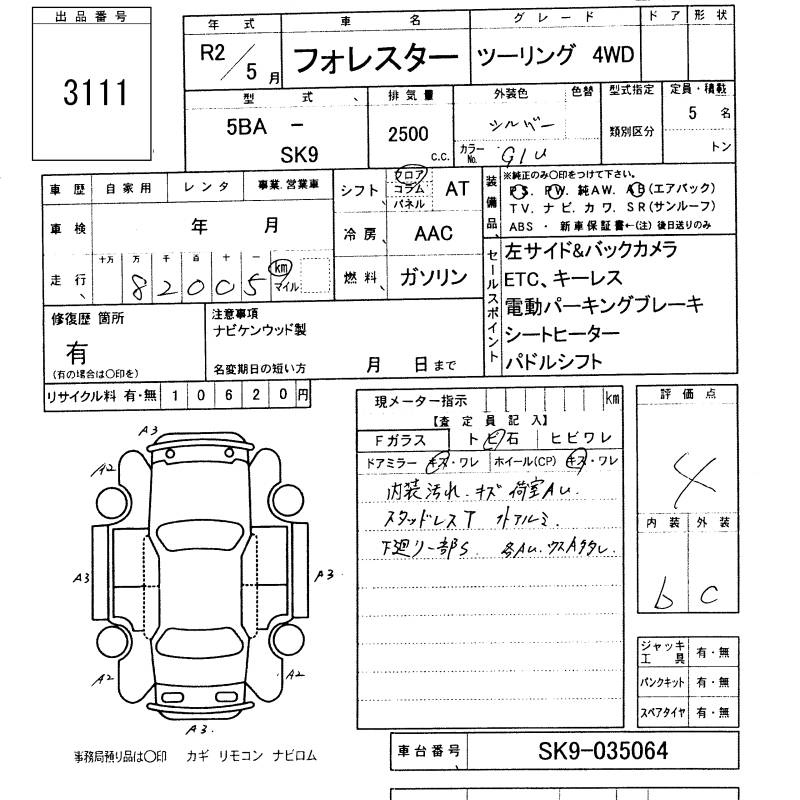 出品番号
3111
年式 車名 グレード ドア 形状
R2/5月 フォレスター ツーリング 4WD
型式 排気量 外装色 色替 型式指定 定員・積載
5BA - SK9 2500 c.c. シルバー 類別区分 5名
カラーNo. G1U トン
車歴 自家用 レンタ 事業.営業車
車検 年 月
走行 十万 万 千 百 十 一 km
82005 マイル
シフト フロア コラム パネル AT
冷房 AAC
燃料 ガソリン
装備品
※純正のみ〇印をつけて下さい。
PS. PW. 純AW. AB(エアバック)
TV. ナビ. カワ. SR(サンルーフ)
ABS ・ 新車保証書←(注) 後日送りのみ
セールスポイント
左サイド&バックカメラ
ETC、キーレス
電動パーキングブレーキ
シートヒーター
パドルシフト
修復歴 箇所
有
(有の場合は〇印を)
注意事項
ナビケンウッド製
名変期日の短い方 月 日まで
リサイクル料 有・無 10620円
現メーター指示 km
【査定員記入】
Fガラス トビ石 ヒビワレ
ドアミラー キズ・ワレ ホイール(CP) キズ・ワレ
内装汚れ.キズ 荷室AU.
スタッドレスT 外アルミ.
下廻り一部S. 各AU.
評価点
4
内装 外装
b C
A3
A2 A2
A3 A3
A2 A2
A3.
ジャッキ工具 有・無
パンクキット 有・無
スペアタイヤ 有・無
事務局預り品は〇印 カギ リモコン ナビロム
車台番号 SK9-035064